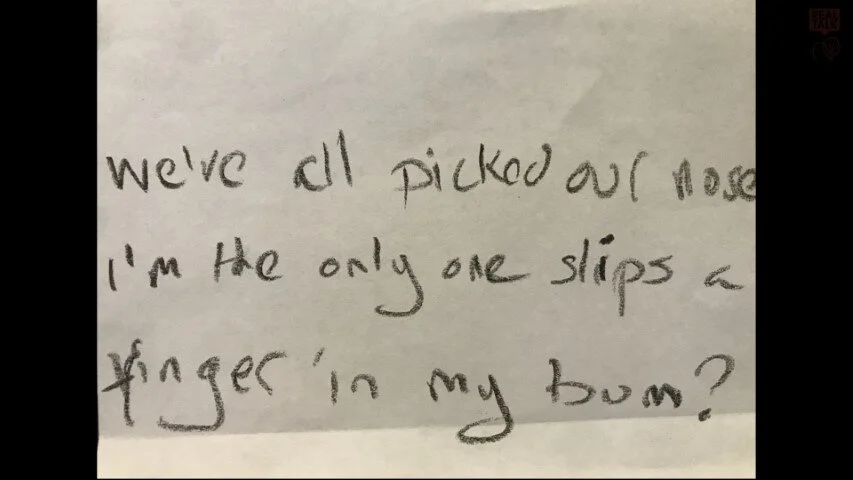 we've all picked our nose
i'm the only one slips a
finger in my bum?